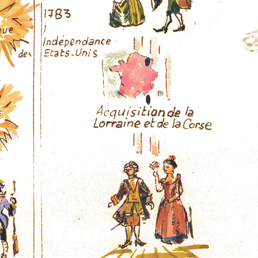 que
1783
Indépendance
des Etats-Unis
Acquisition de la
Lorraine et de la Corse